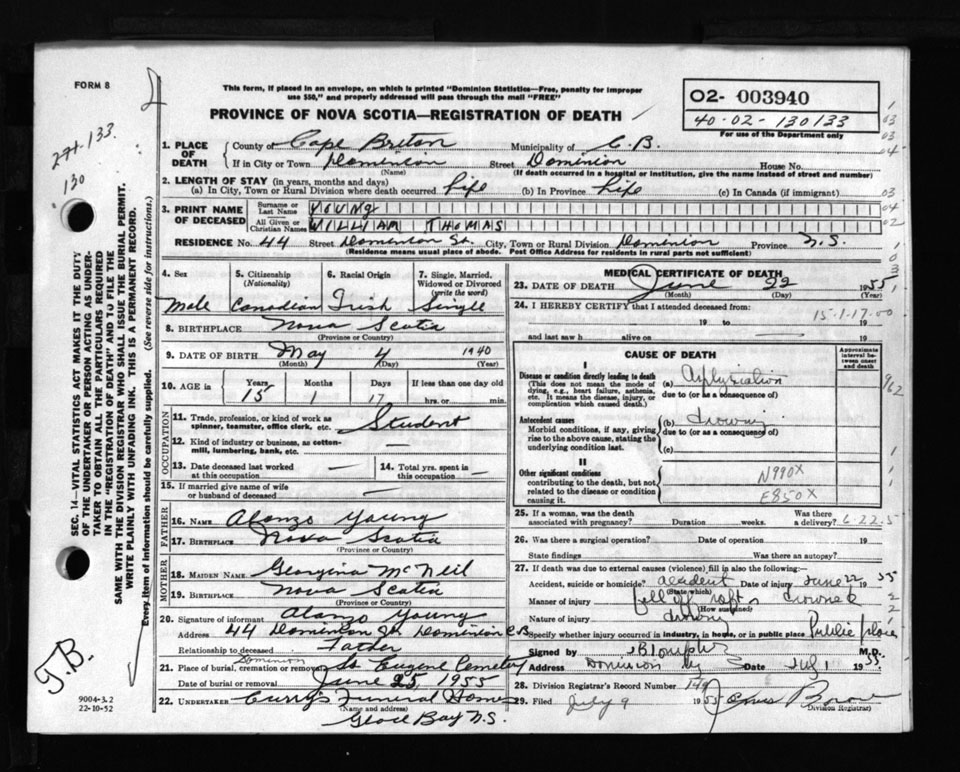 FORM 8
This form, if placed in an envelope, on which is printed "Dominion Statistics—Free, penalty for improper
use $50," and properly addressed will pass through the mail "FREE"
PROVINCE OF NOVA SCOTIA—REGISTRATION OF DEATH
02- 003940
40-02-130133
For use of the Department only
133.
130
1. PLACE OF DEATH County of Cape Breton Municipality of C.B.
If in City or Town Dominion Street Dominion House No.
(Name) (If death occurred in a hospital or institution, give the name instead of street and number)
2. LENGTH OF STAY (in years, months and days)
(a) In City, Town or Rural Division where death occurred Life (b) In Province Life (c) In Canada (if immigrant)
3. PRINT NAME OF DECEASED Surname or Last Name YOUNG
All Given or Christian Names WILLIAM THOMAS
RESIDENCE No. 44 Street Dominion St. City, Town or Rural Division Dominion Province N.S.
(Residence means usual place of abode. Post Office Address for residents in rural parts not sufficient)
4. Sex Male
5. Citizenship (Nationality) Canadian
6. Racial Origin Irish
7. Single, Married, Widowed or Divorced (write the word) Single
8. BIRTHPLACE Nova Scotia
(Province or Country)
9. DATE OF BIRTH May 4 1940
(Month) (Day) (Year)
10. AGE in Years 15 Months 1 Days 17 If less than one day old hrs. or min.
OCCUPATION
11. Trade, profession, or kind of work as spinner, teamster, office clerk, etc. Student
12. Kind of industry or business, as cotton-mill, lumbering, bank, etc. —
13. Date deceased last worked at this occupation —
14. Total yrs. spent in this occupation —
15. If married give name of wife or husband of deceased —
FATHER
16. NAME Alonzo Young
17. BIRTHPLACE Nova Scotia
(Province or Country)
MOTHER
18. MAIDEN NAME Georgina McNeil
19. BIRTHPLACE Nova Scotia
(Province or Country)
20. Signature of informant Alonzo Young
Address 44 Dominion St Dominion C B
Relationship to deceased Father
21. Place of burial, cremation or removal Dominion St. Eugene Cemetery
Date of burial or removal June 25, 1955
22. UNDERTAKER Curry's Funeral Home
(Name and address)
Glace Bay N.S.
MEDICAL CERTIFICATE OF DEATH
23. DATE OF DEATH June 22 1955
(Month) (Day) (Year)
24. I HEREBY CERTIFY that I attended deceased from:
15-1-17-00
19 to 19
and last saw h alive on 19
CAUSE OF DEATH
Approximate interval between onset and death
I
Disease or condition directly leading to death
(This does not mean the mode of dying, e.g., heart failure, asthenia, etc. It means the disease, injury, or complication which caused death.)
(a) Asphyxiation
due to (or as a consequence of)
Antecedent causes
Morbid conditions, if any, giving rise to the above cause, stating the underlying condition last.
(b) drowning
due to (or as a consequence of)
(c)
II
Other significant conditions
contributing to the death, but not related to the disease or condition causing it.
N990X
E850X
25. If a woman, was the death associated with pregnancy? Duration weeks. Was there a delivery? 6-22-5
26. Was there a surgical operation? Date of operation 19
State findings Was there an autopsy?
27. If death was due to external causes (violence) fill in also the following:—
Accident, suicide or homicide? accident Date of injury June 22 1955
(State which)
Manner of injury fell off raft & drowned
(How sustained)
Nature of injury drowning
Specify whether injury occurred in industry, in home, or in public place Public place
Signed by M.D.
Address Dominion Date July 1 1955
28. Division Registrar's Record Number
29. Filed July 9 1955
Division Registrar
SEC. 14—VITAL STATISTICS ACT MAKES IT THE DUTY
OF THE UNDERTAKER OR PERSON ACTING AS UNDER-
TAKER TO OBTAIN ALL THE PARTICULARS REQUIRED
IN THE "REGISTRATION OF DEATH" AND TO FILE THE
SAME WITH THE DIVISION REGISTRAR WHO SHALL ISSUE THE BURIAL PERMIT.
WRITE PLAINLY WITH UNFADING INK. THIS IS A PERMANENT RECORD.
Every item of information should be carefully supplied. (See reverse side for instructions.)
9004-3.2
22-10-52